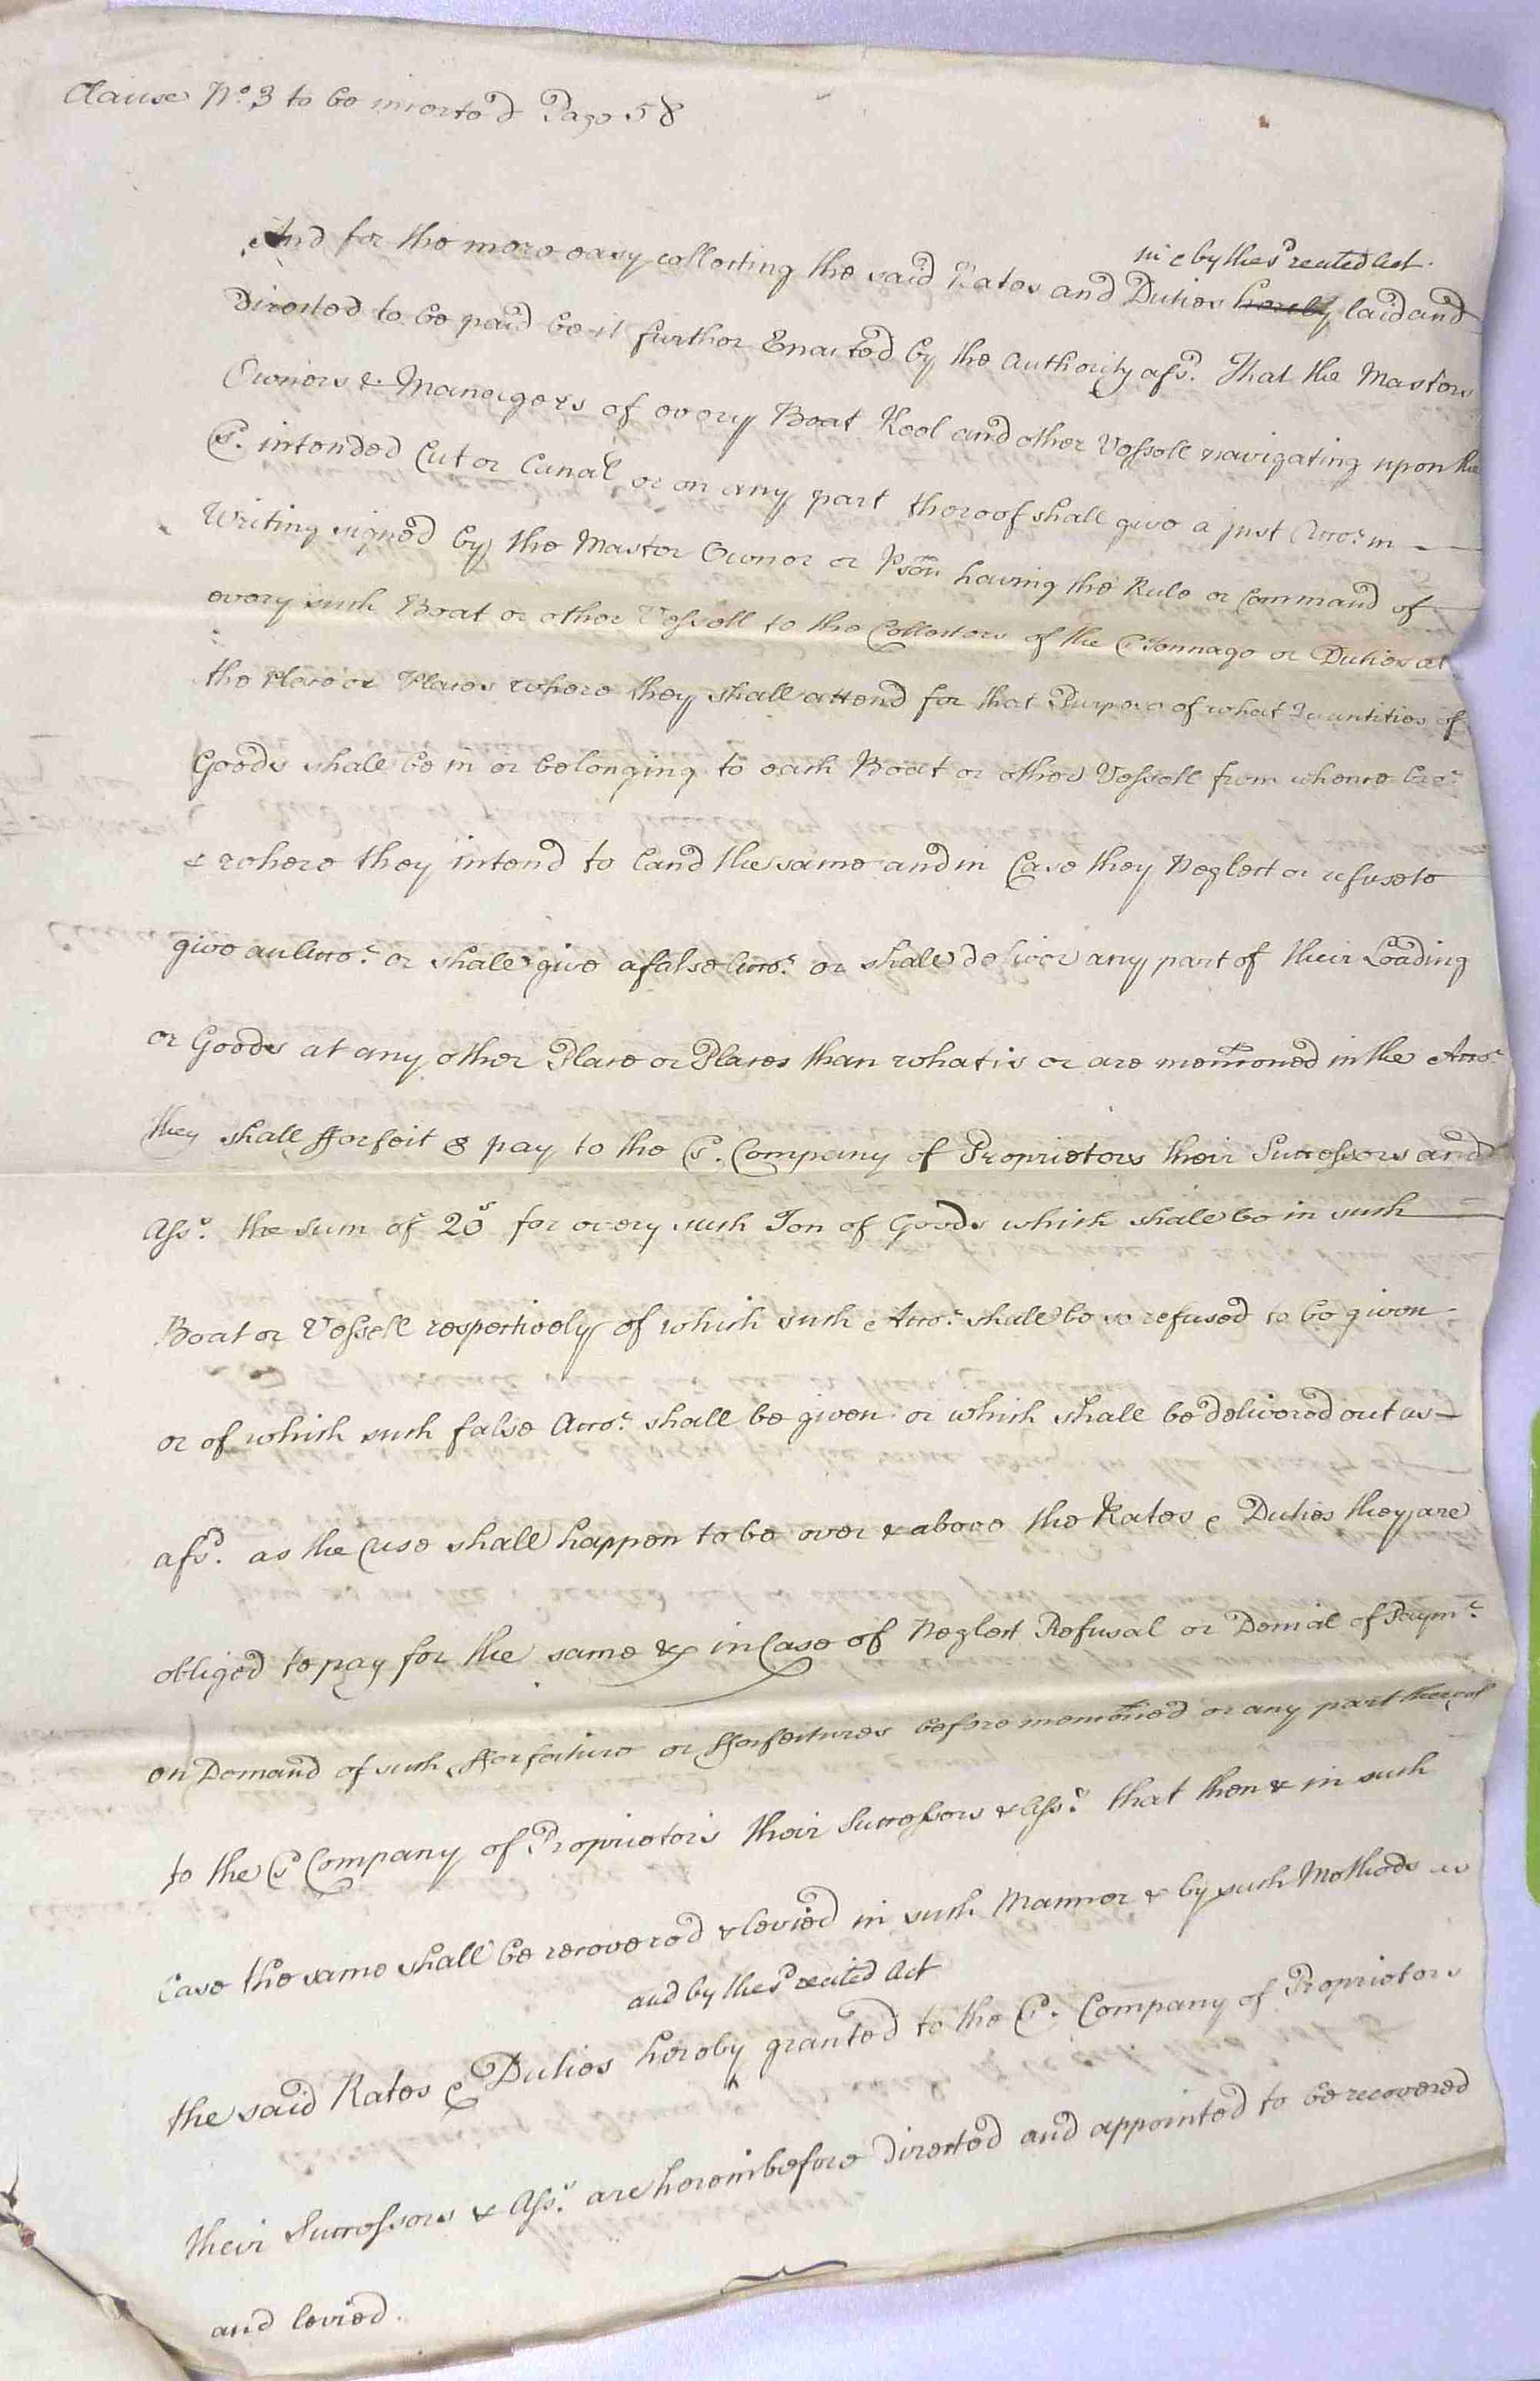 Clause No. 3 to be inserted Page 58
in & by the sd recited Act.
And for the more easy collecting the said Rates and Duties hereby laid and
Directed to be paid be it further Enacted by the Authority afsd. That the Masters
Owners & Managers of every Boat Keel and other Vessell navigating upon the
sd. intended Cut or Canal or on any part thereof shall give a just Accot. in
Writing signed by the Master Owner or Pson having the Rule or Command of
every such Boat or other Vessell to the Collectors of the sd Tonnage or Duties at
the Place or Places where they shall attend for that Purpose of what Quantities of
Goods shall be in or belonging to each Boat or other Vessell from whence brot.
& where they intend to land the same and in Case they Neglect or refuse to
give an Accot. or shall give a false Accot. or shall deliver any part of their Loading
or Goods at any other Place or Places than what is or are mentioned in the Accot.
they shall fforfeit & pay to the sd. Company of Proprietors their Successors and
Asss. the Sum of 20s for every such Ton of Goods which shall be in such
Boat or Vessell respectively of which such Accot. shall be so refused to be given
or of which such false Accot. shall be given or which shall be delivered out as
afsd. as the Case shall happen to be over & above the Rates & Duties they are
obliged to pay for the same & in Case of Neglect Refusal or Denial of Paymt.
on Demand of such fforfeiture or fforfeitures before mentioned or any part thereof
to the sd Company of Proprietors their Successors & Asss. that then & in such
Case the same shall be recovered & levied in such Manner & by such Methods as
and by the sd recited Act
the said Rates & Duties hereby granted to the sd. Company of Proprietors
their Successors & Asss. are hereinbefore directed and appointed to be recovered
and levied.